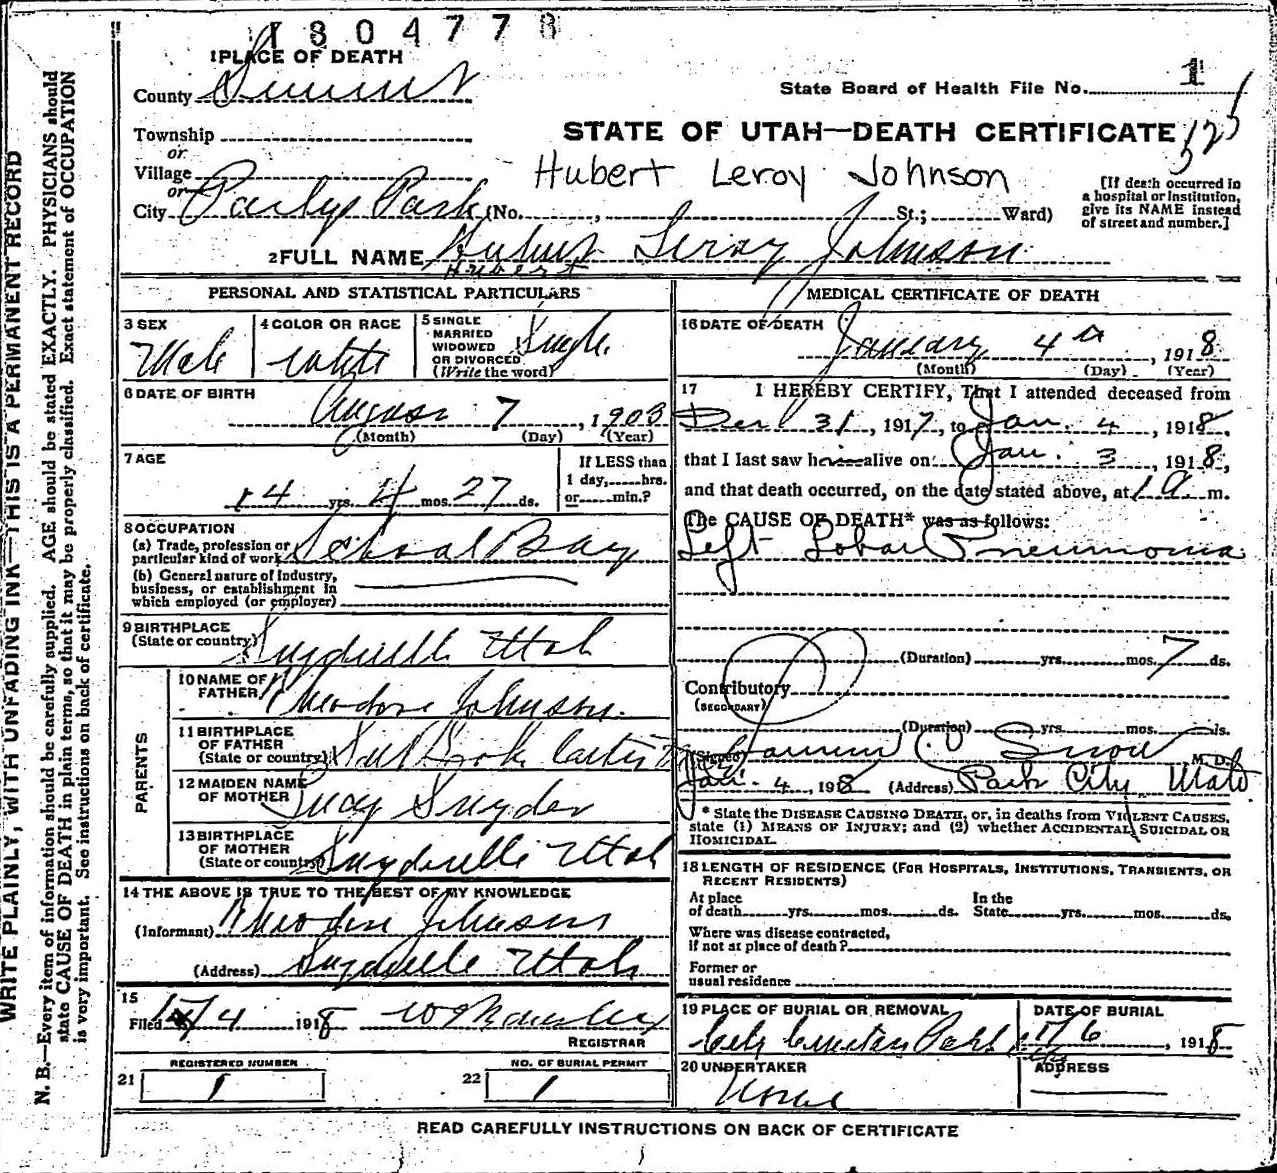 1804778
1 PLACE OF DEATH
County Summit
State Board of Health File No. 1
Township
or
Village
or
City Parleys Park (No. , St.; Ward)
STATE OF UTAH—DEATH CERTIFICATE
Hubert Leroy Johnson
[If death occurred in
a hospital or institution,
give its NAME instead
of street and number.]
2 FULL NAME Hubert Leroy Johnson
Hubert
PERSONAL AND STATISTICAL PARTICULARS
3 SEX
Male
4 COLOR OR RACE
White
5 SINGLE
MARRIED
WIDOWED
OR DIVORCED
(Write the word)
Single
6 DATE OF BIRTH
August 7, 1903
(Month) (Day) (Year)
7 AGE
14 yrs. 4 mos. 27 ds.
If LESS than
1 day, hrs.
or min.?
8 OCCUPATION
(a) Trade, profession or
particular kind of work School Boy
(b) General nature of industry,
business, or establishment in
which employed (or employer)
9 BIRTHPLACE
(State or country) Snyderville Utah
PARENTS
10 NAME OF
FATHER Theodore Johnson
11 BIRTHPLACE
OF FATHER
(State or country)
12 MAIDEN NAME
OF MOTHER Lucy Snyder
13 BIRTHPLACE
OF MOTHER
(State or country) Snyderville Utah
14 THE ABOVE IS TRUE TO THE BEST OF MY KNOWLEDGE
(Informant) Theodore Johnson
(Address) Snyderville Utah
15
Filed 1/4 1918
REGISTRAR
21 REGISTERED NUMBER
1
22 NO. OF BURIAL PERMIT
1
MEDICAL CERTIFICATE OF DEATH
16 DATE OF DEATH
January 4th, 1918
(Month) (Day) (Year)
17 I HEREBY CERTIFY, That I attended deceased from
Dec 31, 1917, to Jan. 4, 1918,
that I last saw h alive on Jan. 3, 1918,
and that death occurred, on the date stated above, at 1 a. m.
The CAUSE OF DEATH* was as follows:
Left Lobar Pneumonia
(Duration) yrs. mos. 7 ds.
Contributory
(SECONDARY)
(Duration) yrs. mos. ds.
(Signed) Snow M. D.
Jan. 4, 1918 (Address) Park City, Utah
* State the DISEASE CAUSING DEATH, or, in deaths from VIOLENT CAUSES,
state (1) MEANS OF INJURY; and (2) whether ACCIDENTAL, SUICIDAL OR
HOMICIDAL.
18 LENGTH OF RESIDENCE (FOR HOSPITALS, INSTITUTIONS, TRANSIENTS, OR
RECENT RESIDENTS)
At place
of death yrs. mos. ds.
In the
State yrs. mos. ds.
Where was disease contracted,
if not at place of death?
Former or
usual residence
19 PLACE OF BURIAL OR REMOVAL
City
DATE OF BURIAL
1/6, 1918
20 UNDERTAKER
None
ADDRESS
READ CAREFULLY INSTRUCTIONS ON BACK OF CERTIFICATE
WRITE PLAINLY, WITH UNFADING INK—THIS IS A PERMANENT RECORD
N. B.—Every item of information should be carefully supplied. AGE should be stated EXACTLY. PHYSICIANS should
state CAUSE OF DEATH in plain terms, so that it may be properly classified. Exact statement of OCCUPATION
is very important. See instructions on back of certificate.